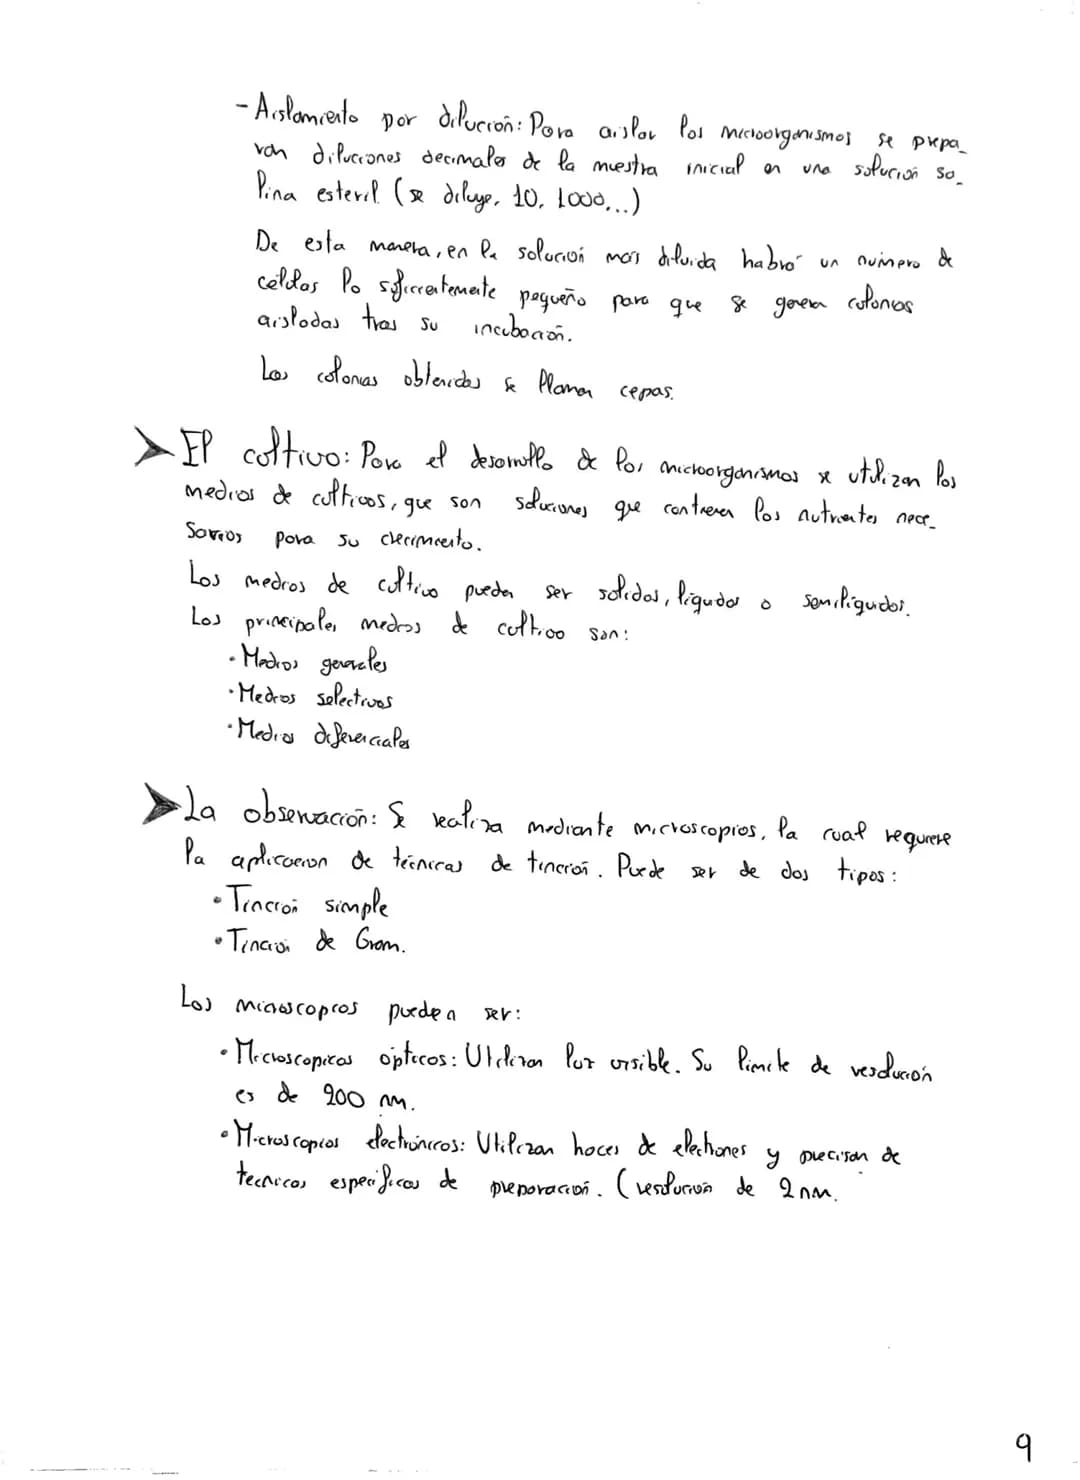 - Aislamiento por dilución: Para aislar los microorganismos se prepa_
ran diluciones decimales de la muestra inicial en una solución sa_
lina esteril (se diluye, 10, 1000,...)
De esta manera, en la solución más diluida habrá un número de
células lo suficientemente pequeño para que se generen colonias
aisladas tras su incubación.
Las colonias obtenidas se llaman cepas.
➤ El cultivo: Para el desarrollo de los microorganismos se utilizan los
medios de cultivos, que son soluciones que contienen los nutrientes nece_
sarios para su crecimiento.
Los medios de cultivo pueden ser solidos, líquidos o semilíquidos.
Los principales medios de cultivo son:
· Medios generales
· Medios selectivos
· Medios diferenciales
➤ La observación: Se realiza mediante microscopios, la cual requiere
la aplicación de técnicas de tinción. Puede ser de dos tipos:
• Tinción simple
• Tinción de Gram.
Los microscopios pueden ser:
• Microscopicos ópticos: Utilizan luz visible. Su límite de resolución
es de 200 nm.
• Microscopios electrónicos: Utilizan haces de electrones y precisan de
técnicas específicas de preparación. (resolución de 2nm.
9